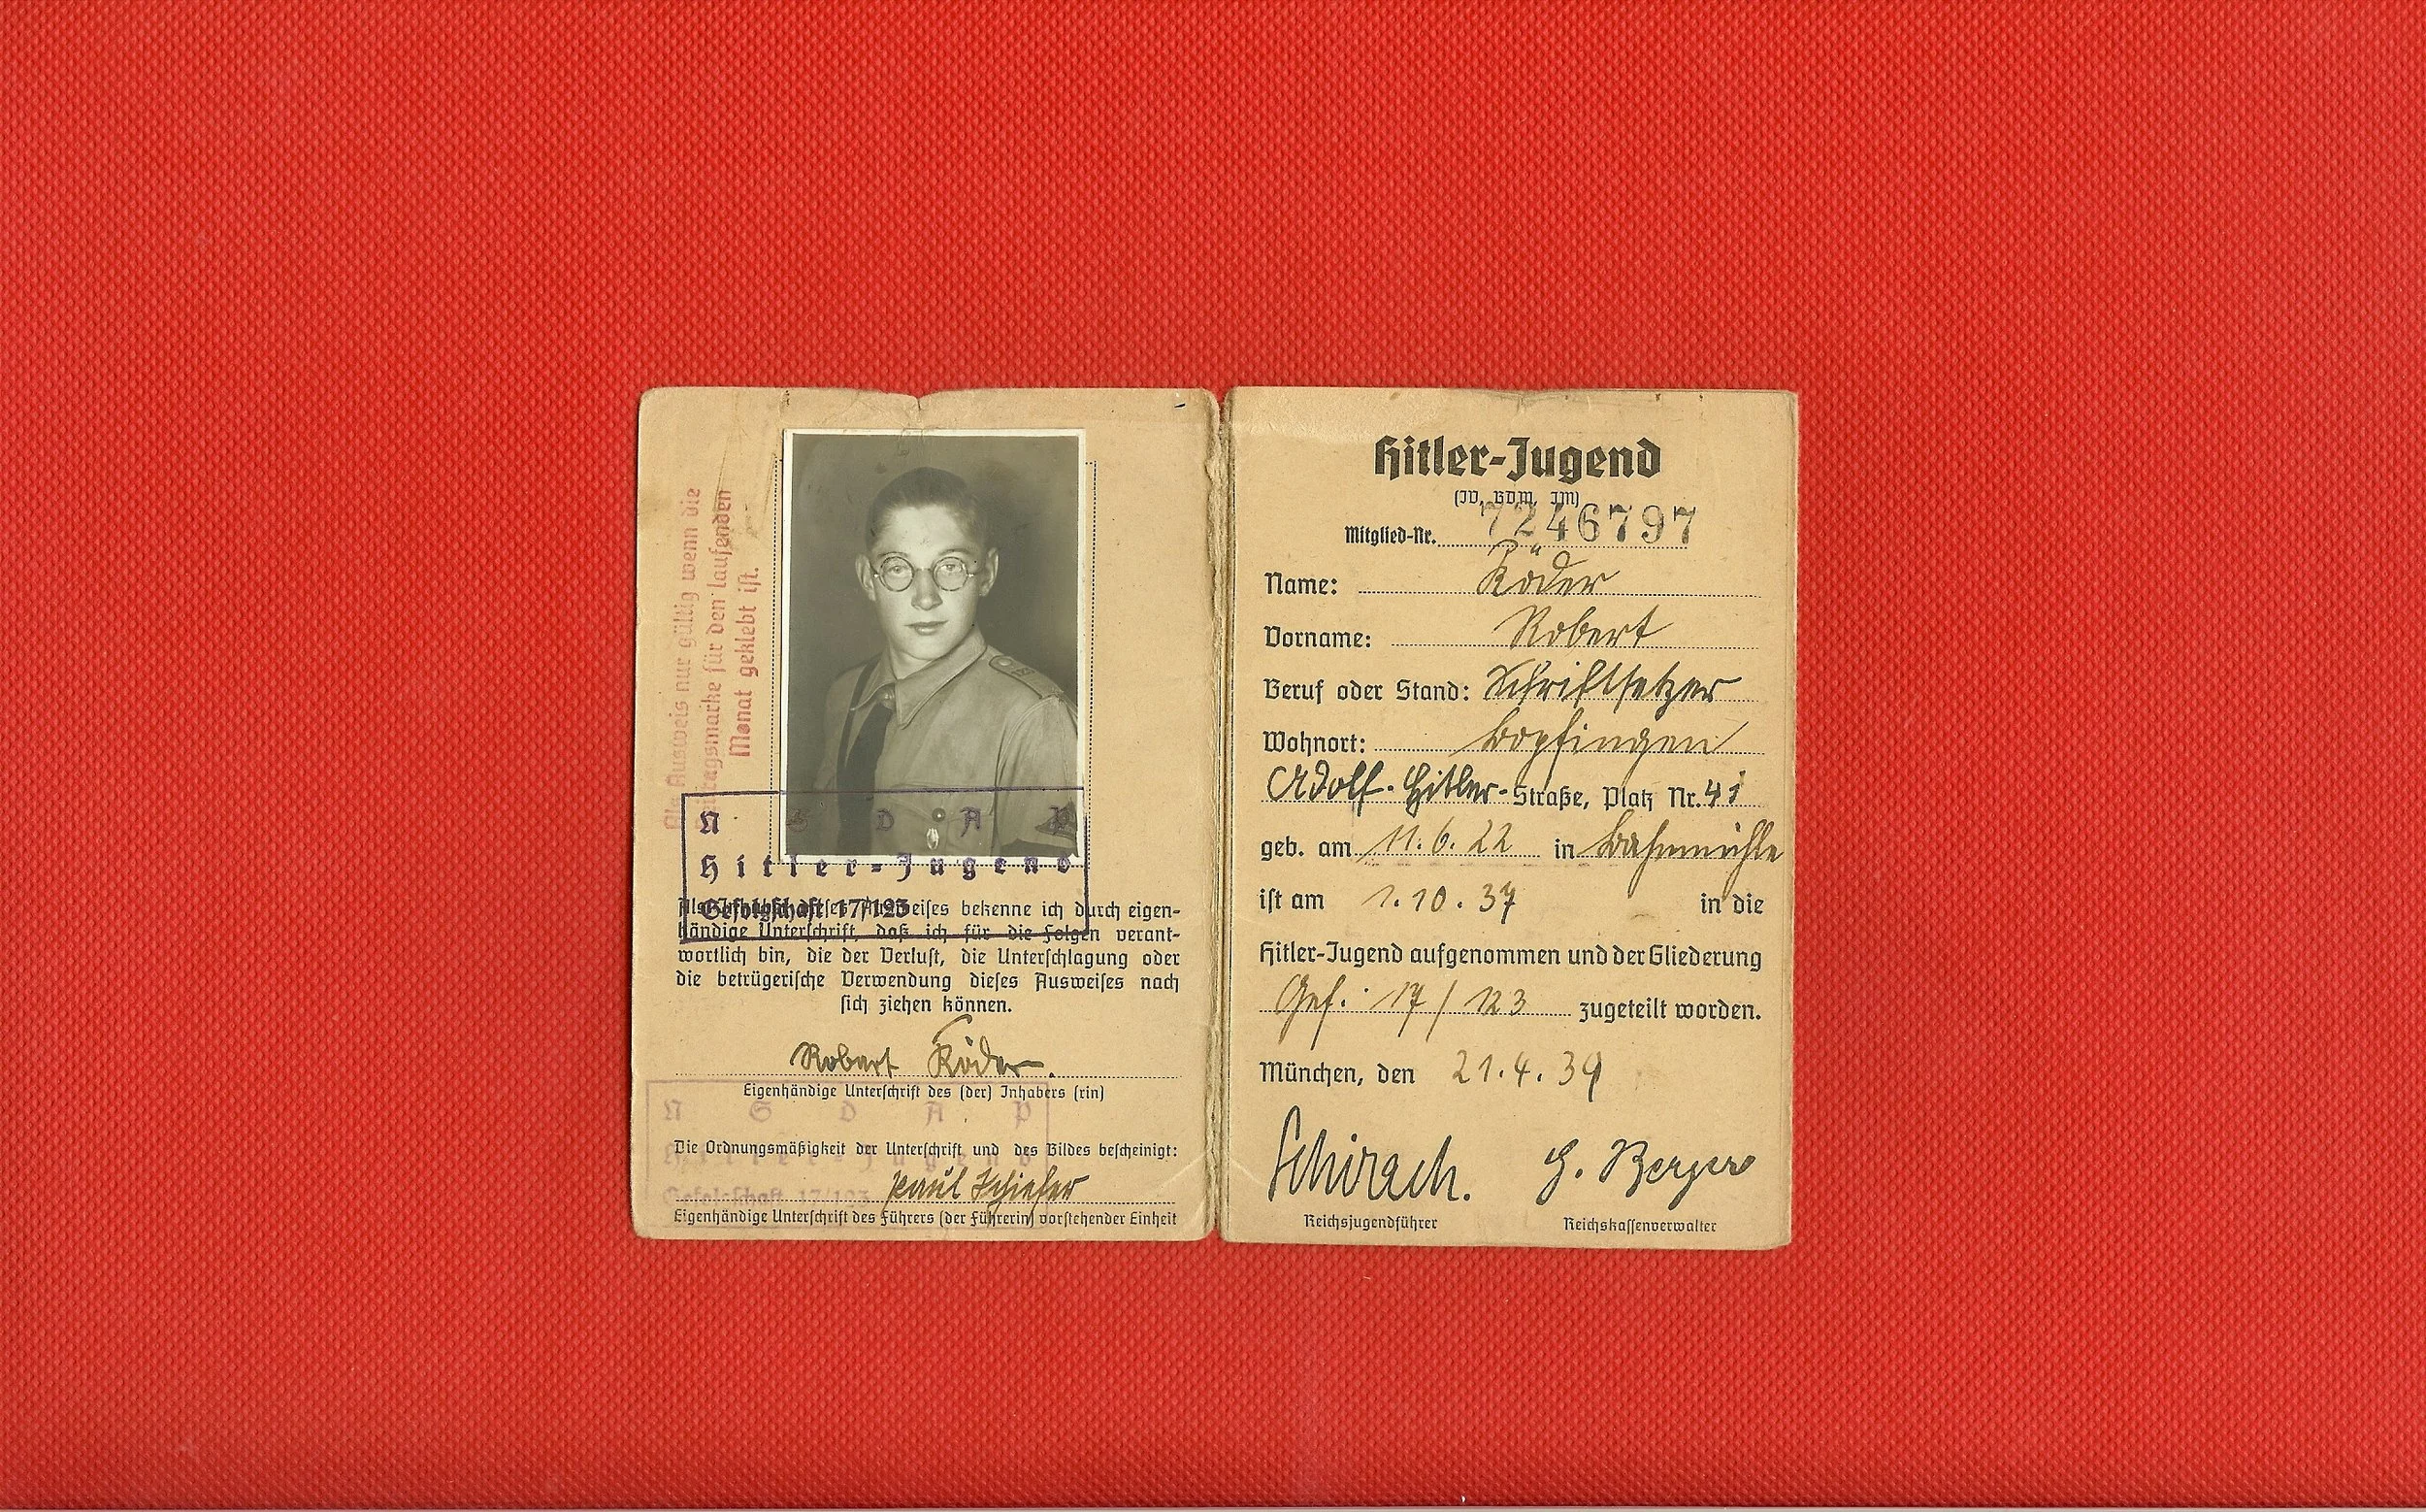 Als Ausweis nur gültig wenn die
Beitragsmarke für den laufenden
Monat geklebt ist.
N S D A P
Hitler-Jugend
Gefolgschaft 17/123
Als Inhaber dieses Ausweises bekenne ich durch eigen-
händige Unterschrift, daß ich für die Folgen verant-
wortlich bin, die der Verlust, die Unterschlagung oder
die betrügerische Verwendung dieses Ausweises nach
sich ziehen können.
Robert Röder.
Eigenhändige Unterschrift des (der) Inhabers (rin)
N S D A P
Hitler-Jugend
Gefolgschaft 17/123
Die Ordnungsmäßigkeit der Unterschrift und des Bildes bescheinigt:
Paul Schiefer
Eigenhändige Unterschrift des Führers (der Führerin) vorstehender Einheit
Hitler-Jugend
(JV, BDM, JM)
Mitglied-Nr. 7246797
Name: Röder
Vorname: Robert
Beruf oder Stand: Schriftsetzer
Wohnort: Bopfingen
Adolf-Hitler-Straße, Platz Nr. 41
geb. am 11.6.22 in
ist am 1.10.37 in die
Hitler-Jugend aufgenommen und der Gliederung
Gef. 17/123 zugeteilt worden.
München, den 21.4.39
Schirach. G. Berger
Reichsjugendführer Reichskassenverwalter